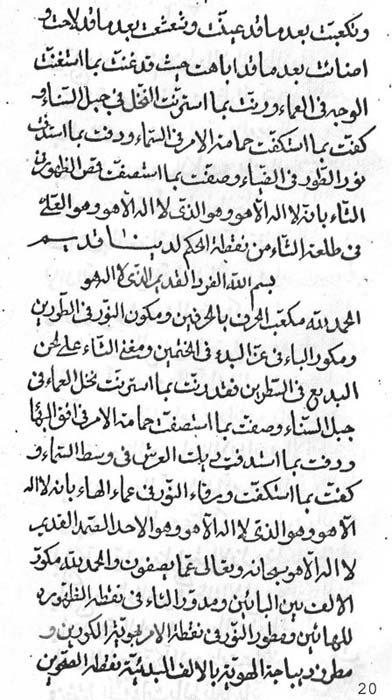 وتكعبت بعد ما قد عينت وتشعشعت بعد ما قد لاحت و
اضائت بعد ما قد اباهت حيث قد غنت بما استغنت
الوجه فى العماء ورنت بما استرنت النحل فى جبل السناء و
كفت بما استكفت حمامة الامر فى السماء ودفت بما استدفت
نور الطور فى الضياء وصفت بما استصفت
الثناء بانه لا اله الا هو وهو الذى لا اله الا هو وهو
فى طلعة الثناء من نقطة الحكم لدينا قديم
بسم الله الفرد القديم الذى لا اله الا هو
الحمد لله مكعب الحرف بالحرفين ومكون النور فى الطورين
ومكور الباء فى عز البدء فى الختمين ومغنى الثناء على لحن
البديع فى السطرين فقد رنت بما استرنت نحل العماء فى
جبل السناء وصفت بما استصفت حمامة الامر فى افق البهاء
ودفت بما استدفت ديك العرش فى وسط السماء و
كفت بما استكفت ورقاء النور فى عماء الهاء بانه لا اله
الا هو وهو الذى لا اله الا هو وهو الاحد الصمد القديم
لا اله الا هو سبحانه وتعالى عما يصفون والحمد لله مكور
الالف بين البائين ومدور الثاء فى نقطة الظهوره
للهائين ومطور النور فى نقطة الامر هوية الكورين و
مطرز ديباجة الهوية بالالف البدئية نقطة
20